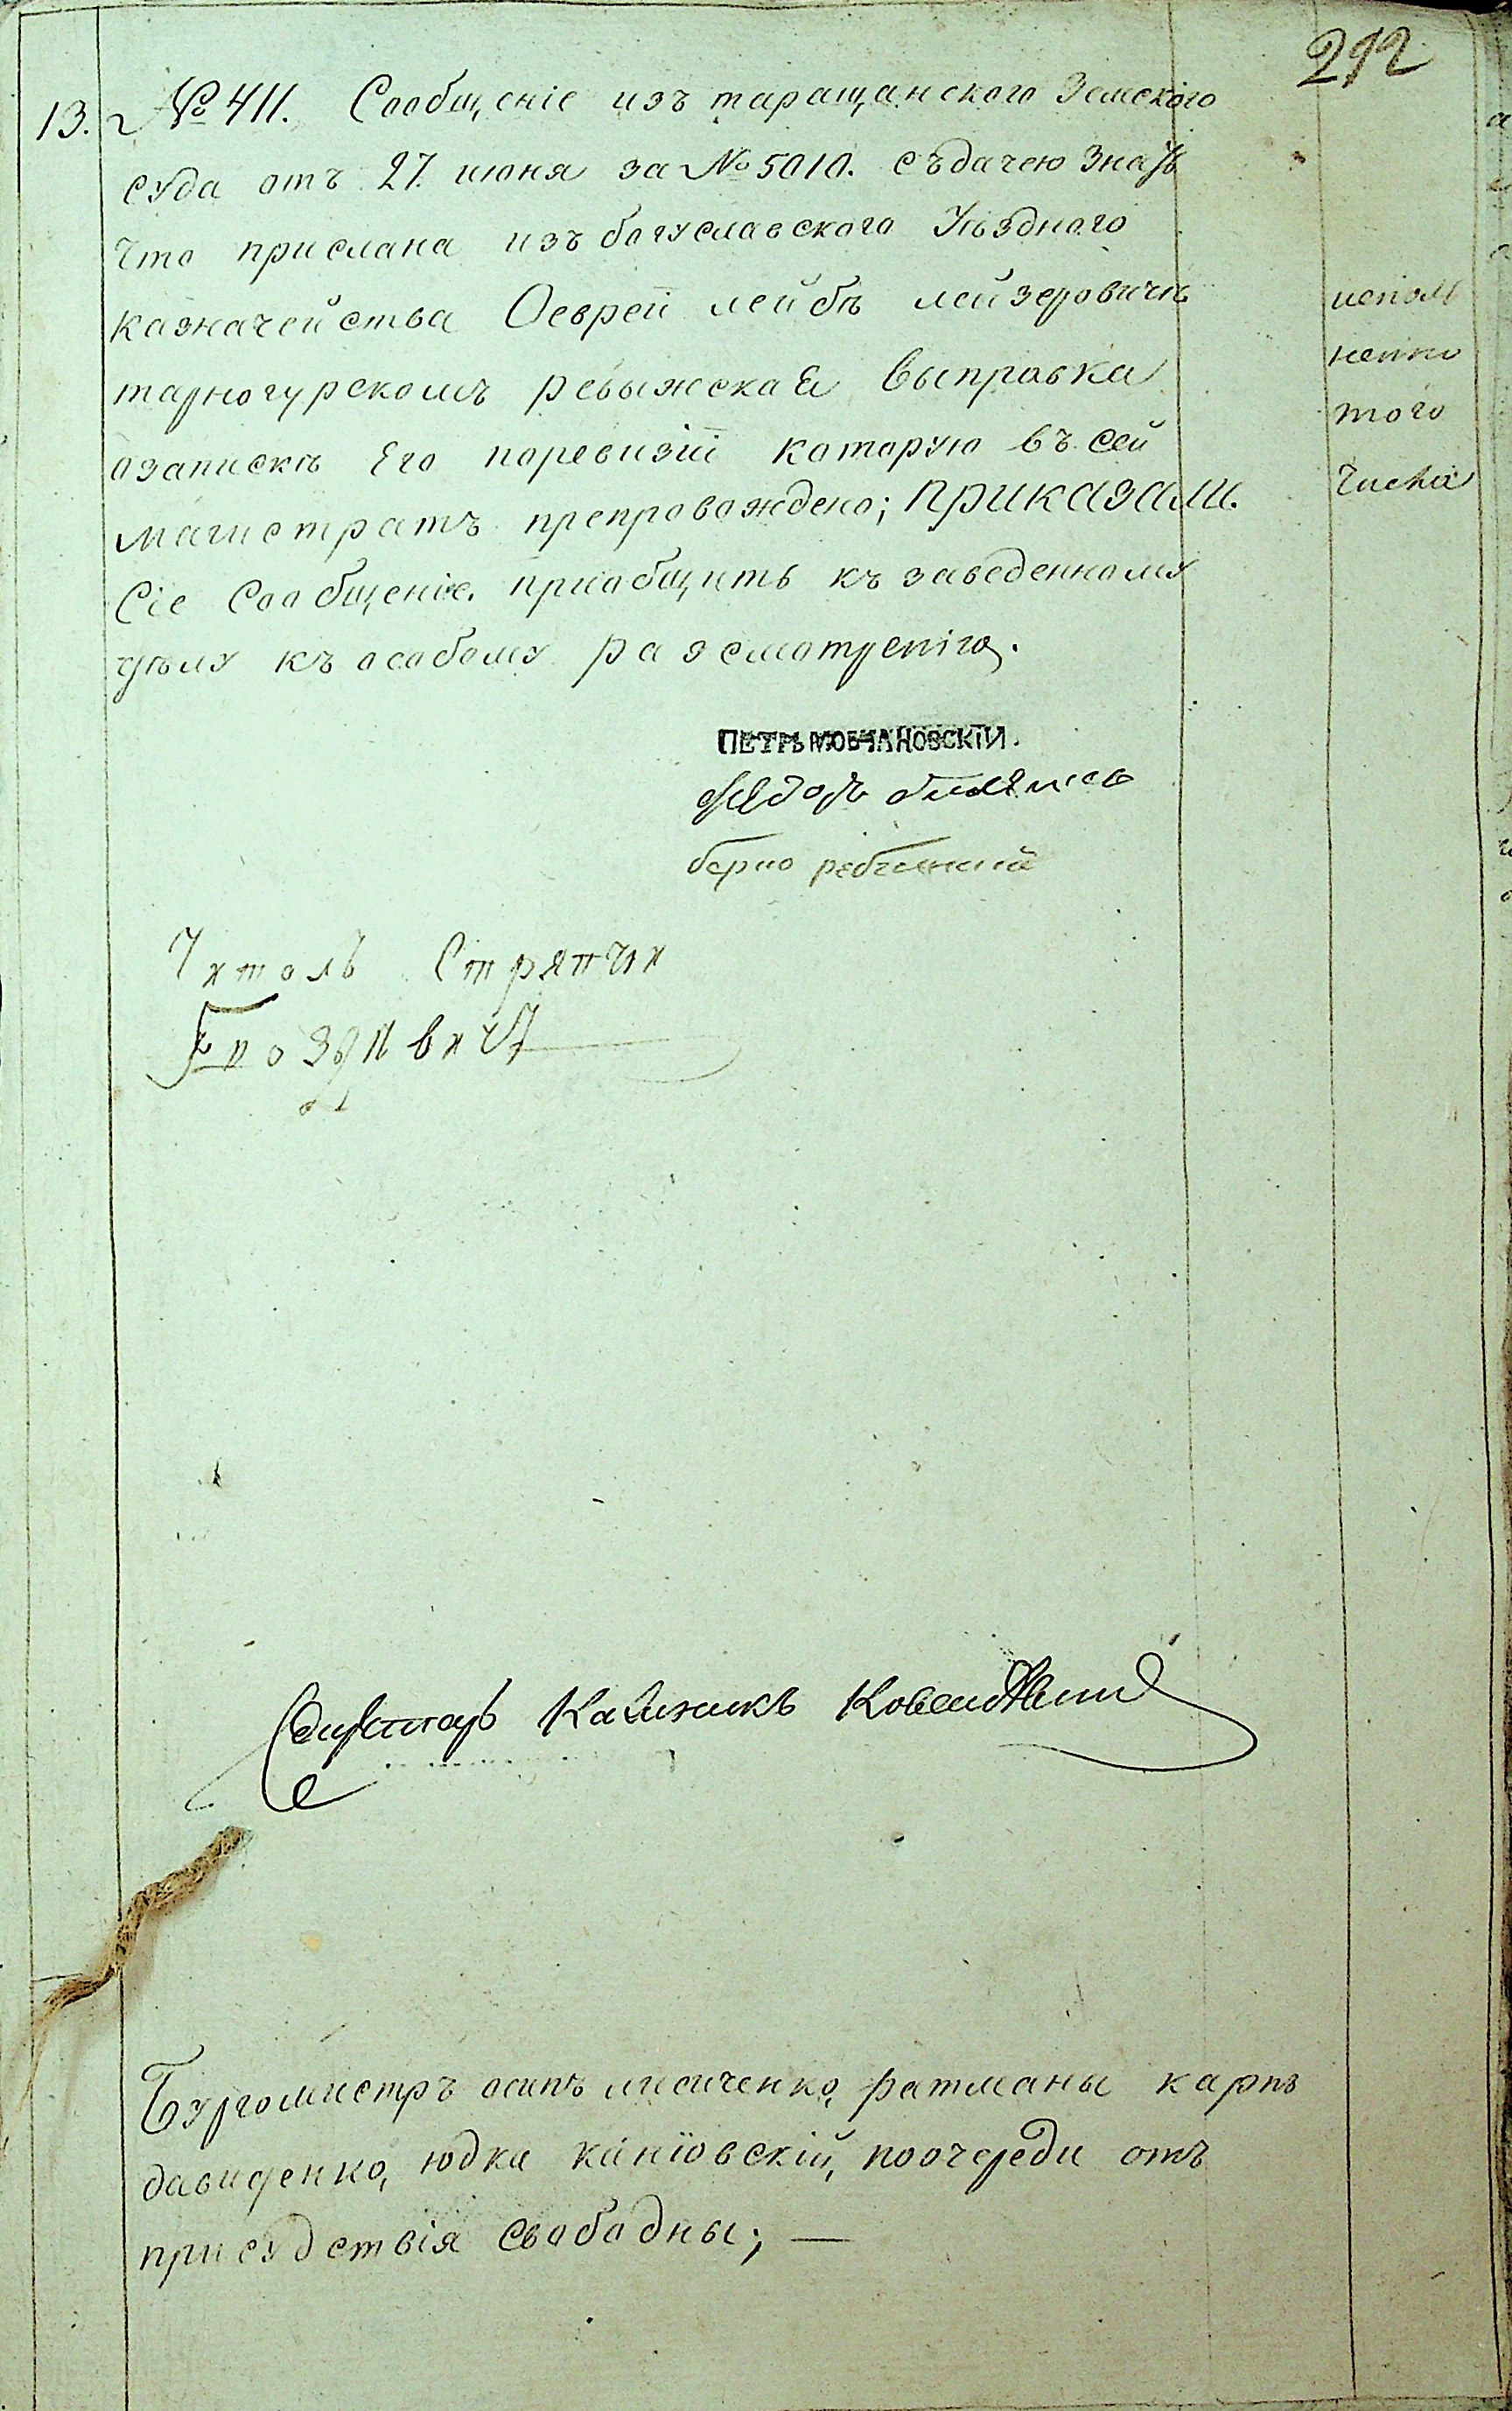 292
13. № 411. Сообщеніе изъ таращанского Земского
суда отъ 27. июня за № 5010. съдачею знать
Что прислана изъ богуславского Уѣздного
казначейства Оеврей лейбѣ лейзеровичѣ
тарногурскомъ ревыжская выправка
озапискѣ Его поревизіи которую въ сей
магистратъ препровождено; Приказали.
Сіе Сообщеніе. приобщить къ заведенному
дѣлу къ особому разсмотренію.
исполнено
того
Числа
ПЕТРЪ МОВЧАНОВСКІЙ.
берко
Читолъ Стряпчи
Секретарь Калиникъ
Бургомистръ осипъ лисиченко, ратманы карпъ
давиденко, юдка каніовскій, поочереди отъ
присудствія Свободны; —